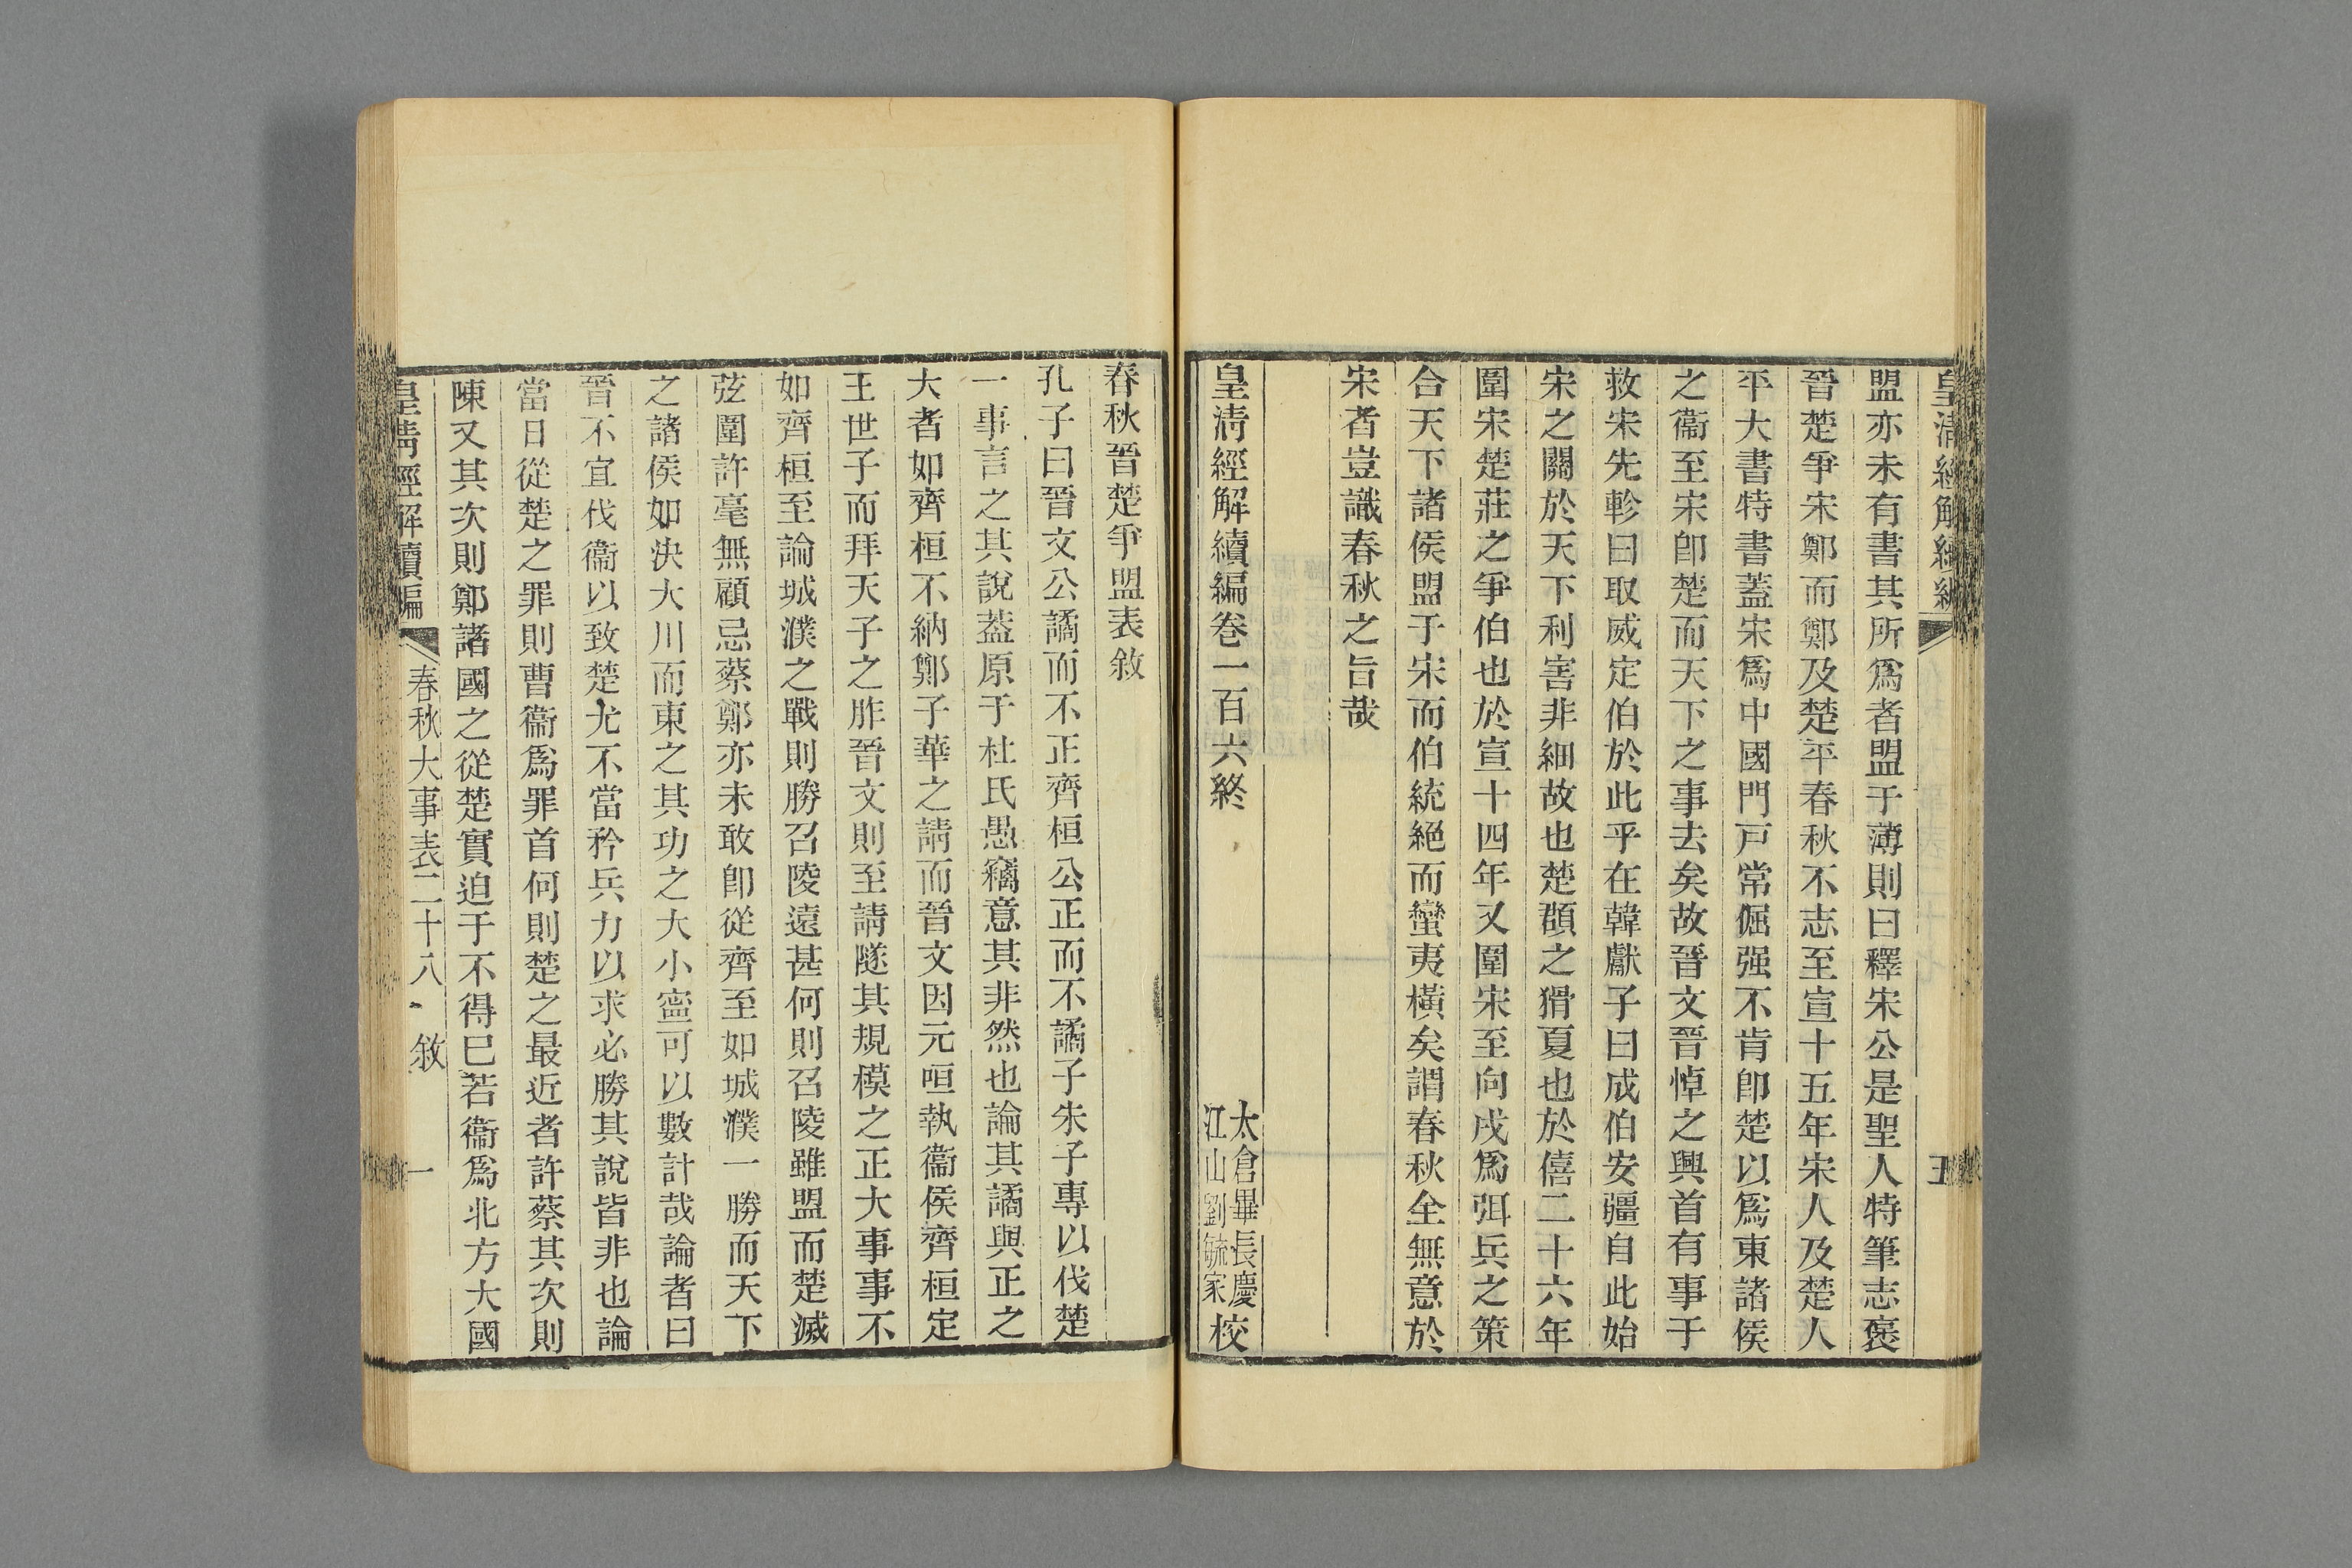 皇清經解續編
五
盟亦未有書其所爲者盟于薄則曰釋宋公是聖人特筆志褒
晉楚爭宋鄭而鄭及楚平春秋不志至宣十五年宋人及楚人
平大書特書蓋宋爲中國門戸常倔强不肯卽楚以爲東諸侯
之衞至宋卽楚而天下之事去矣故晉文晉悼之興首有事于
救宋先軫曰取威定伯於此乎在韓獻子曰成伯安疆自此始
宋之關於天下利害非細故也楚頵之猾夏也於僖二十六年
圍宋楚莊之爭伯也於宣十四年又圍宋至向戌爲弭兵之策
合天下諸侯盟于宋而伯統絕而蠻夷橫矣謂春秋全無意於
宋者豈識春秋之旨哉
皇清經解續編卷一百六終
太倉畢長慶
江山劉毓家
校
春秋晉楚爭盟表敘
孔子曰晉文公譎而不正齊桓公正而不譎子朱子專以伐楚
一事言之其說葢原于杜氏愚竊意其非然也論其譎與正之
大者如齊桓不納鄭子華之請而晉文因元咺執衞侯齊桓定
王世子而拜天子之胙晉文則至請隧其規模之正大事事不
如齊桓至論城濮之戰則勝召陵遠甚何則召陵雖盟而楚滅
弦圍許毫無顧忌蔡鄭亦未敢卽從齊至如城濮一勝而天下
之諸侯如決大川而東之其功之大小寍可以數計哉論者曰
晉不宜伐衞以致楚尤不當矜兵力以求必勝其說皆非也論
當日從楚之罪則曹衞爲罪首何則楚之最近者許蔡其次則
陳又其次則鄭諸國之從楚實迫于不得已若衞爲北方大國
皇清經解續編
春秋大事表二十八
敘
一